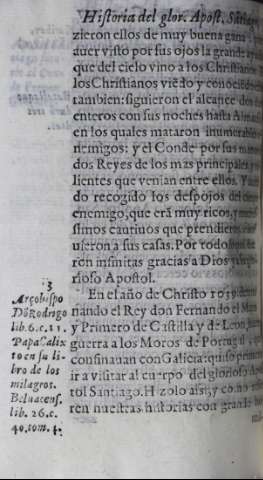 Historia del glor. Apost. Santiago
zieron ellos de muy buena gana
auer visto por sus ojos la grande
que del cielo vino a los Christianos
los Christianos viẽdo y conociẽdo
tambien: siguieron el alcance dos
enteros con sus noches hasta
en los quales mataron innumerables
nemigos: y el Conde por sus manos
dos Reyes de los mas principales y
lientes que venian entre ellos. Y
do recogido los despojos del
enemigo, que erã muy ricos, y
simos cautiuos que prendieron,
uieron a sus casas. Por todo
ren infinitas gracias a Dios y
rioso Apostol.
3
Arçobispo
Dõ Rodrigo
lib. 6. c. 11.
Papa Calix
to en su li
bro de los
milagros.
Beluacens.
lib. 26. c.
40. tom. 4.
En el año de Christo
nando el Rey don Fernando el Mag
y Primero de Castilla y de Leon,
guerra a los Moros de Portugal y
confinauan con Galicia: quiso
ir a visitar al cuerpo del glorioso
tol Santiago. Hizolo assi, y como
ren nuestras historias con grande